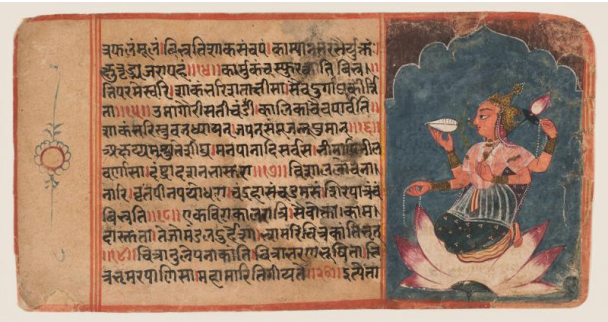 त्रफलंमूलं।बिभ्रतिशाकसंचयं।काम्यानंतरसैर्युक्तं
क्षुतृड्मृत्युजरापहं॥१४॥कार्मुकंचस्फुरत्कांतिबिभ्र
तिपरमेस्वरि।शाकंभरिशताक्षीसा।सैवदुर्गाप्रकीर्ति
ता॥१५॥उमागौरीसतीचंडी।कालिकाचैवपार्वति।
शाकंभरिस्तुवनध्यायन।जपनसंपूजन्नमन॥१६॥
अक्षय्यमश्नुतेशीघ्रं।मनपानादि।भीमापिनील
वर्णासा।दंष्ट्रादशनभासुरा॥१७॥विशाललोचना
नारि।वृतपीनपयोधरा।चंद्रहासंचडमरुंशिरपात्रंच
बिभ्रति॥१८॥एकविराकालरात्रि।सैवोक्ताकामा
दास्तुता।तेजोमंडलदुर्द्धर्षा।भ्रामरिचित्रकांतिभृत
॥१९॥चित्रानुलेपनाकांति।चित्राभरणभूषिता।चि
त्रभ्रमरपाणिसा।महामारितिगीयते॥२०॥इत्येता